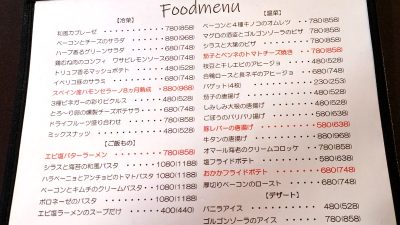 Foodmenu
【冷菜】
和風カプレーゼ ・・・ 780(858)
ベーコンとチーズのサラダ ・・・ 880(968)
ハーブ香るグリーンサラダ ・・・ 680(748)
鶏むね肉のコンフィ　ワサビレモンソース ・・・ 680(748)
トリュフ香るマッシュポテト ・・・ 480(528)
イベリコ豚のサラミ ・・・ 680(748)
スペイン産ハモンセラーノ8ヵ月熟成 ・・・ 880(968)
3種ピネガーの彩りピクルス ・・・ 480(528)
とろ～り卵の燻製チーズポテサラ ・・・ 680(748)
ドライフルーツ盛り合わせ ・・・ 780(858)
ミックスナッツ ・・・ 480(528)
【ご飯もの】
エビ塩バターラーメン ・・・ 780(858)
シラスと海苔の和風パスタ ・・・ 1080(1188)
ハラペーニョとアンチョビのトマトパスタ ・・・ 1080(1188)
ベーコンとキムチのクリームパスタ ・・・ 1080(1188)
ボロネーゼのパスタ ・・・ 1080(1188)
エビ塩ラーメンのスープだけ ・・・ 400(440)
【温菜】
ベーコンと４種キノコのオムレツ ・・・ 780(858)
マグロの酒盗とゴルゴンゾーラのピザ ・・・ 780(858)
シラスと大葉のピザ ・・・ 780(858)
茄子とペンネのトマトチーズ焼き ・・・ 780(858)
枝豆と干しエビのアヒージョ ・・・ 680(748)
合鴨ロースと長ネギのアヒージョ ・・・ 680(748)
バゲット(4枚) ・・・ 230(253)
茄子の唐揚げ ・・・ 480(528)
しみしみ大根の唐揚げ ・・・ 480(528)
ごぼうのパリパリ揚げ ・・・ 480(528)
豚レバーの唐揚げ ・・・ 580(638)
牛タンの唐揚げ ・・・ 680(748)
オマール海老のクリームコロッケ ・・・ 580(638)
塩フライドポテト ・・・ 580(638)
おかかフライドポテト ・・・ 680(748)
厚切りベーコンのロースト ・・・ 680(748)
【デザート】
バニラアイス ・・・ 480(528)
ゴルゴンゾーラのアイス ・・・ 780(858)